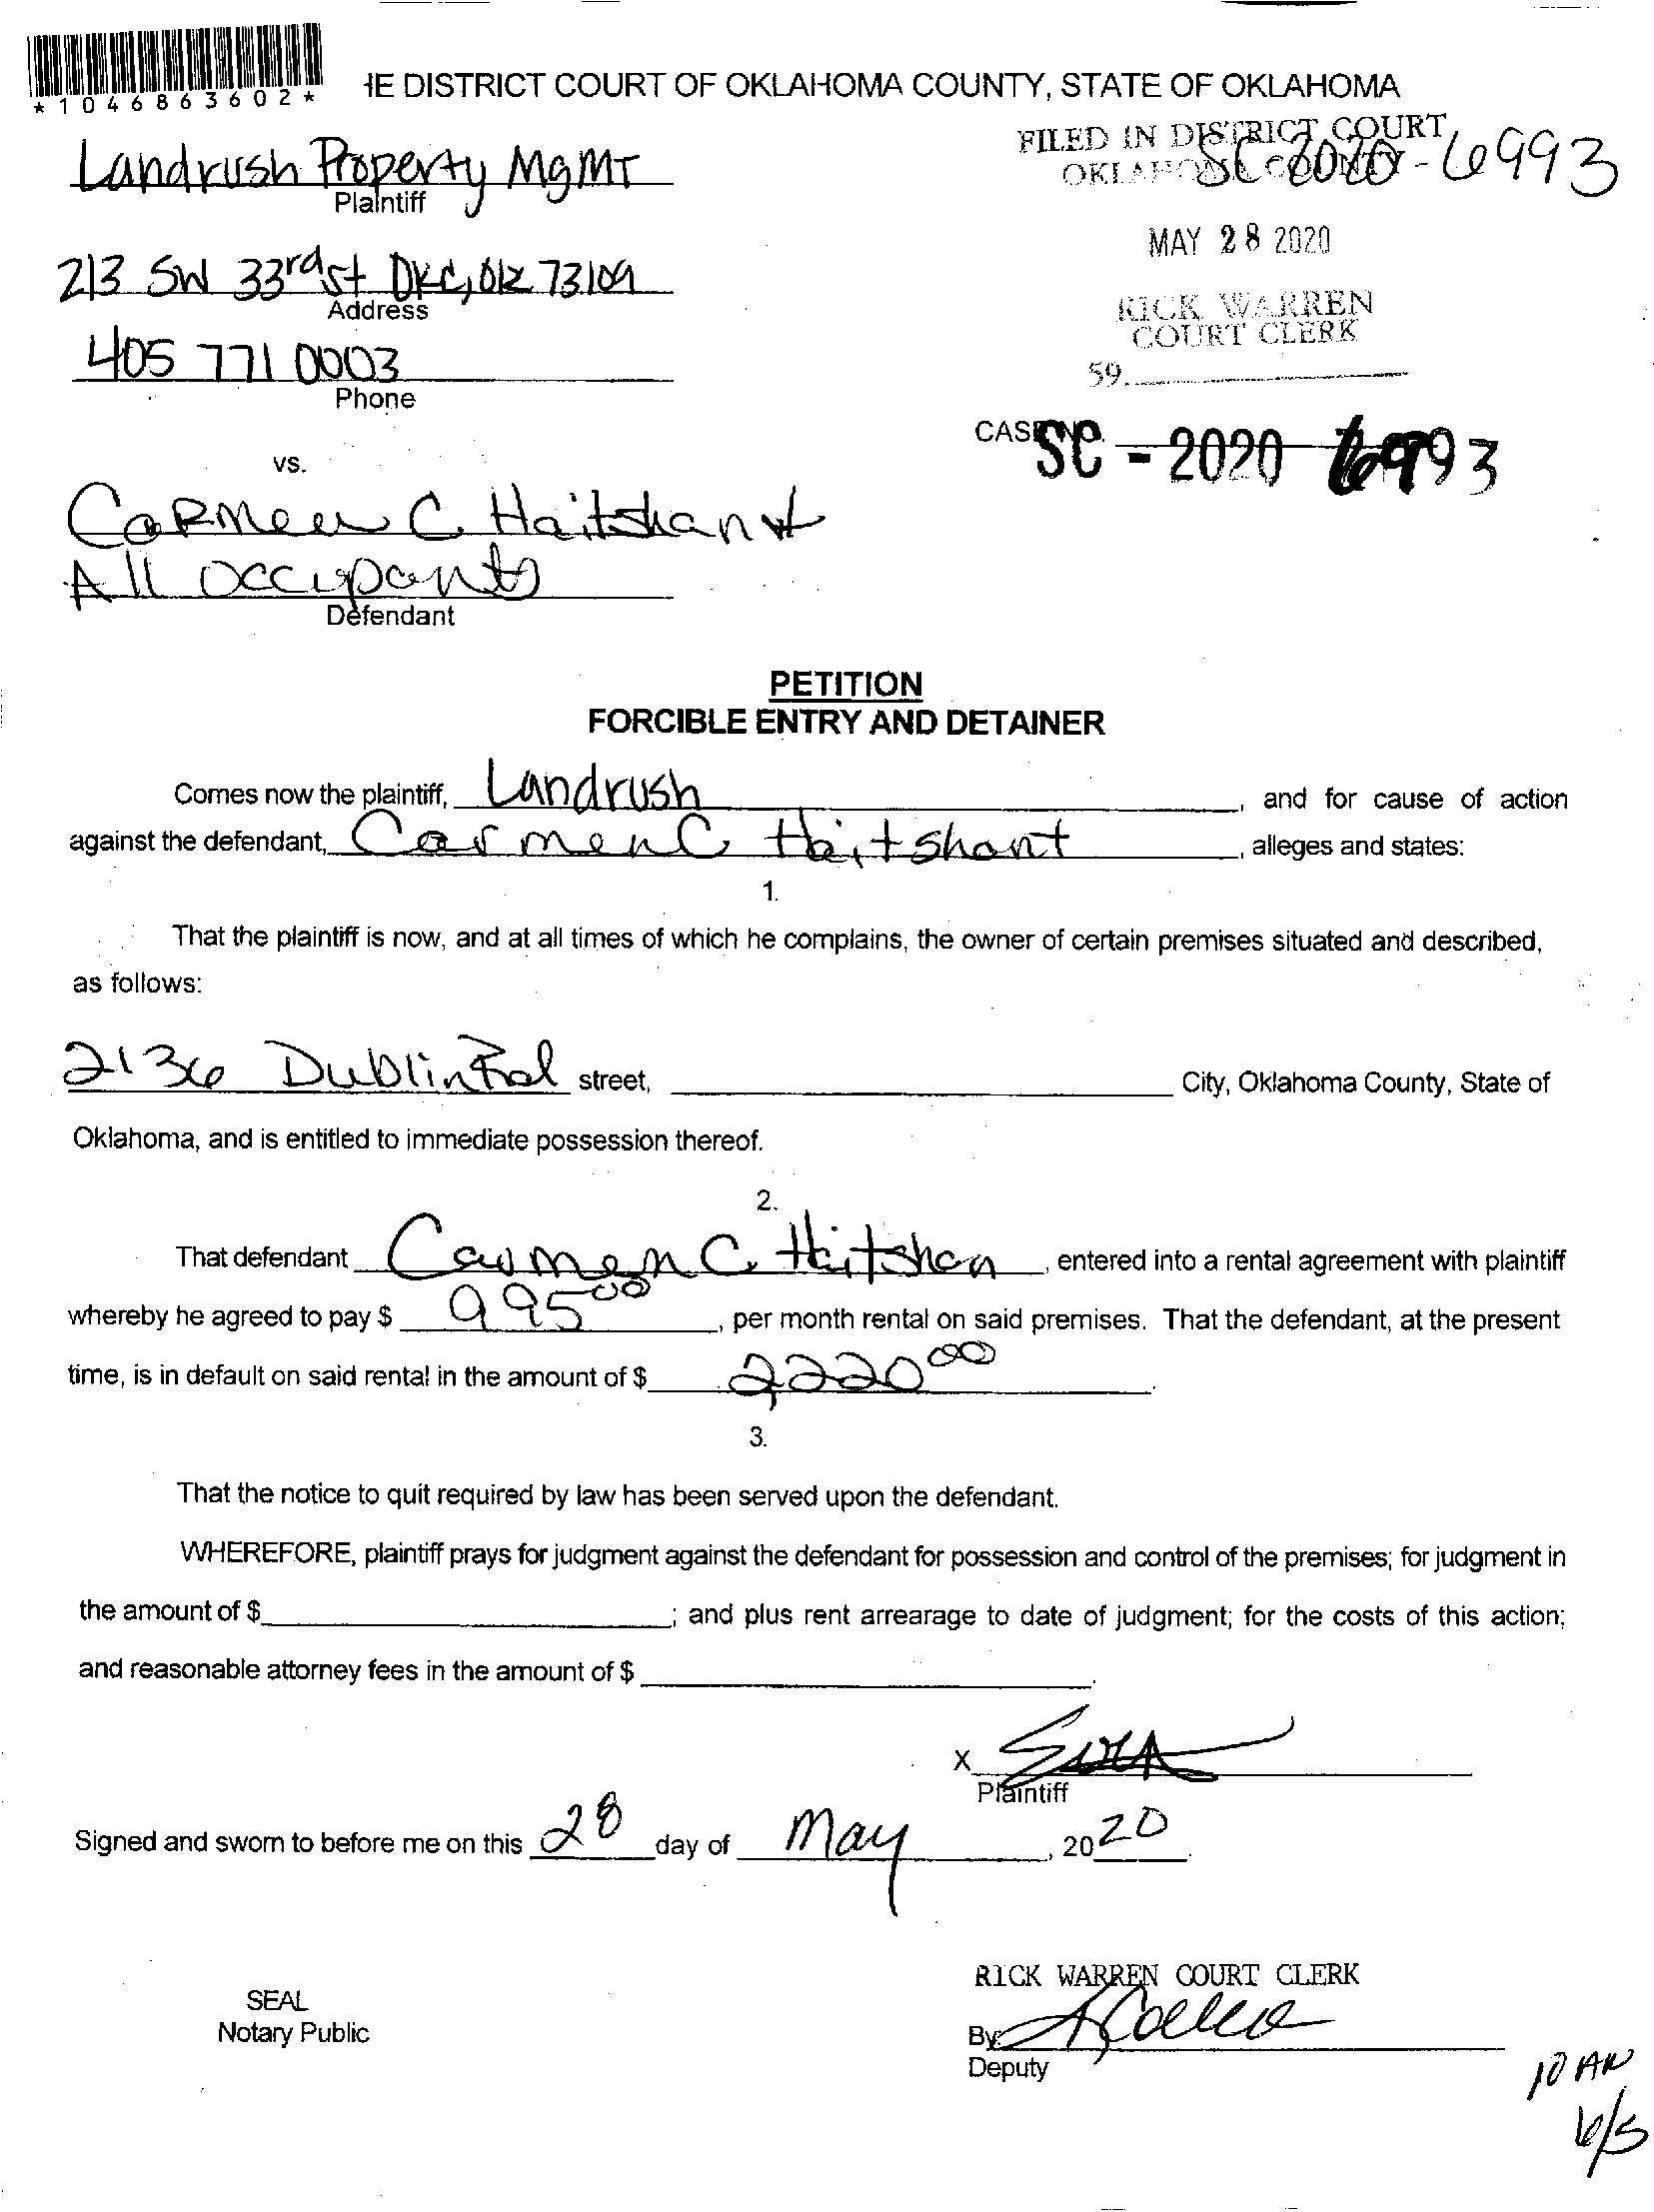 *1046863602*
HE DISTRICT COURT OF OKLAHOMA COUNTY, STATE OF OKLAHOMA
Landrush Property MgMT
Plaintiff
FILED IN DISTRICT COURT
OKLAHOMA COUNTY
SC 2020-6993
MAY 28 2020
213 SW 33rd st OKC, OK 73109
Address
RICK WARREN
COURT CLERK
405 771 0003
Phone
59
CASE NO.
SC - 2020 6993
vs.
Carmen C Haitshant
All occupants
Defendant
PETITION
FORCIBLE ENTRY AND DETAINER
Comes now the plaintiff, Landrush, and for cause of action
against the defendant, Carmen C Haitshant, alleges and states:
1.
That the plaintiff is now, and at all times of which he complains, the owner of certain premises situated and described,
as follows:
2136 Dublin Rd street, City, Oklahoma County, State of
Oklahoma, and is entitled to immediate possession thereof.
2.
That defendant Carmen C. Haitshan, entered into a rental agreement with plaintiff
whereby he agreed to pay $ 995 00, per month rental on said premises. That the defendant, at the present
time, is in default on said rental in the amount of $ 2,220 00.
3.
That the notice to quit required by law has been served upon the defendant.
WHEREFORE, plaintiff prays for judgment against the defendant for possession and control of the premises; for judgment in
the amount of $ ; and plus rent arrearage to date of judgment; for the costs of this action;
and reasonable attorney fees in the amount of $ .
X
Plaintiff
Signed and sworn to before me on this 28 day of May, 2020.
RICK WARREN COURT CLERK
SEAL
Notary Public
By:
Deputy
10 AM
6/5